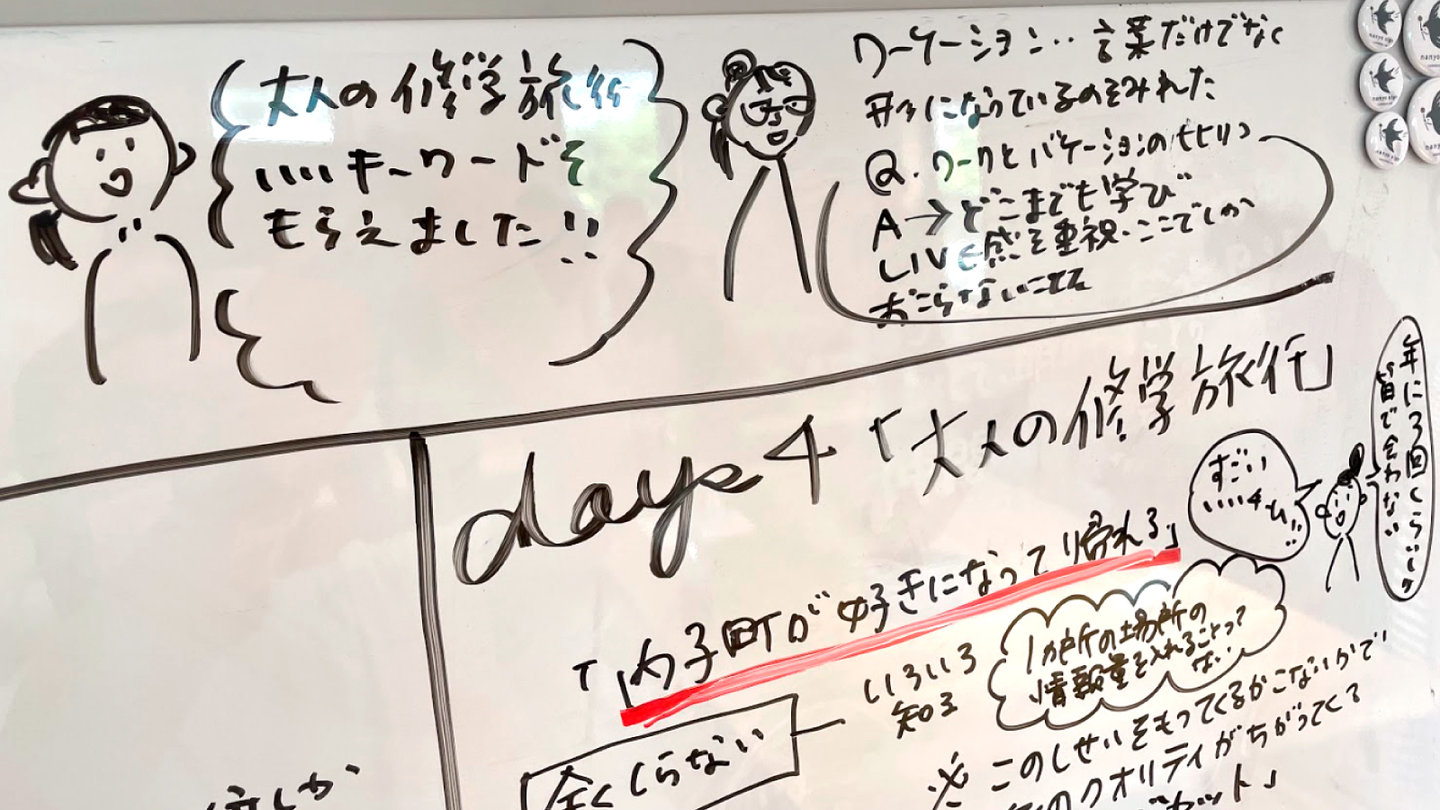 大人の修学旅行
いいキーワードを
もらえました!!
ワーケーション・・言葉だけでなく
形になっているのをみれた
Q.ワークとバケーションのヒヒリつ
A→どこまでも学び
LIVE感を重視・ここでしか
おこらないこと
days4「大人の修学旅行」
年に3回くらいしか
皆で会わない
すごい
いいチーム!!
「内子町が好きになって帰れる」
いろいろ
知る
1か所の場所の
情報量を入れることって
ない
全くしらない
※このしせいをもってくるかこないかで
のクオリティがちがってくる